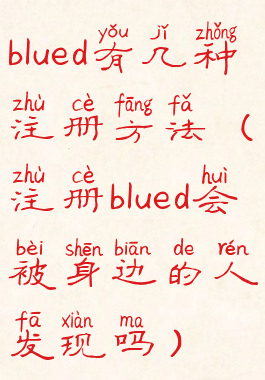 yǒu jǐ zhǒng
blued有几种
zhù cè fāng fǎ
注册方法（
zhù cè huì
注册blued会
bèi shēn biān de rén
被身边的人
fā xiàn ma
发现吗）